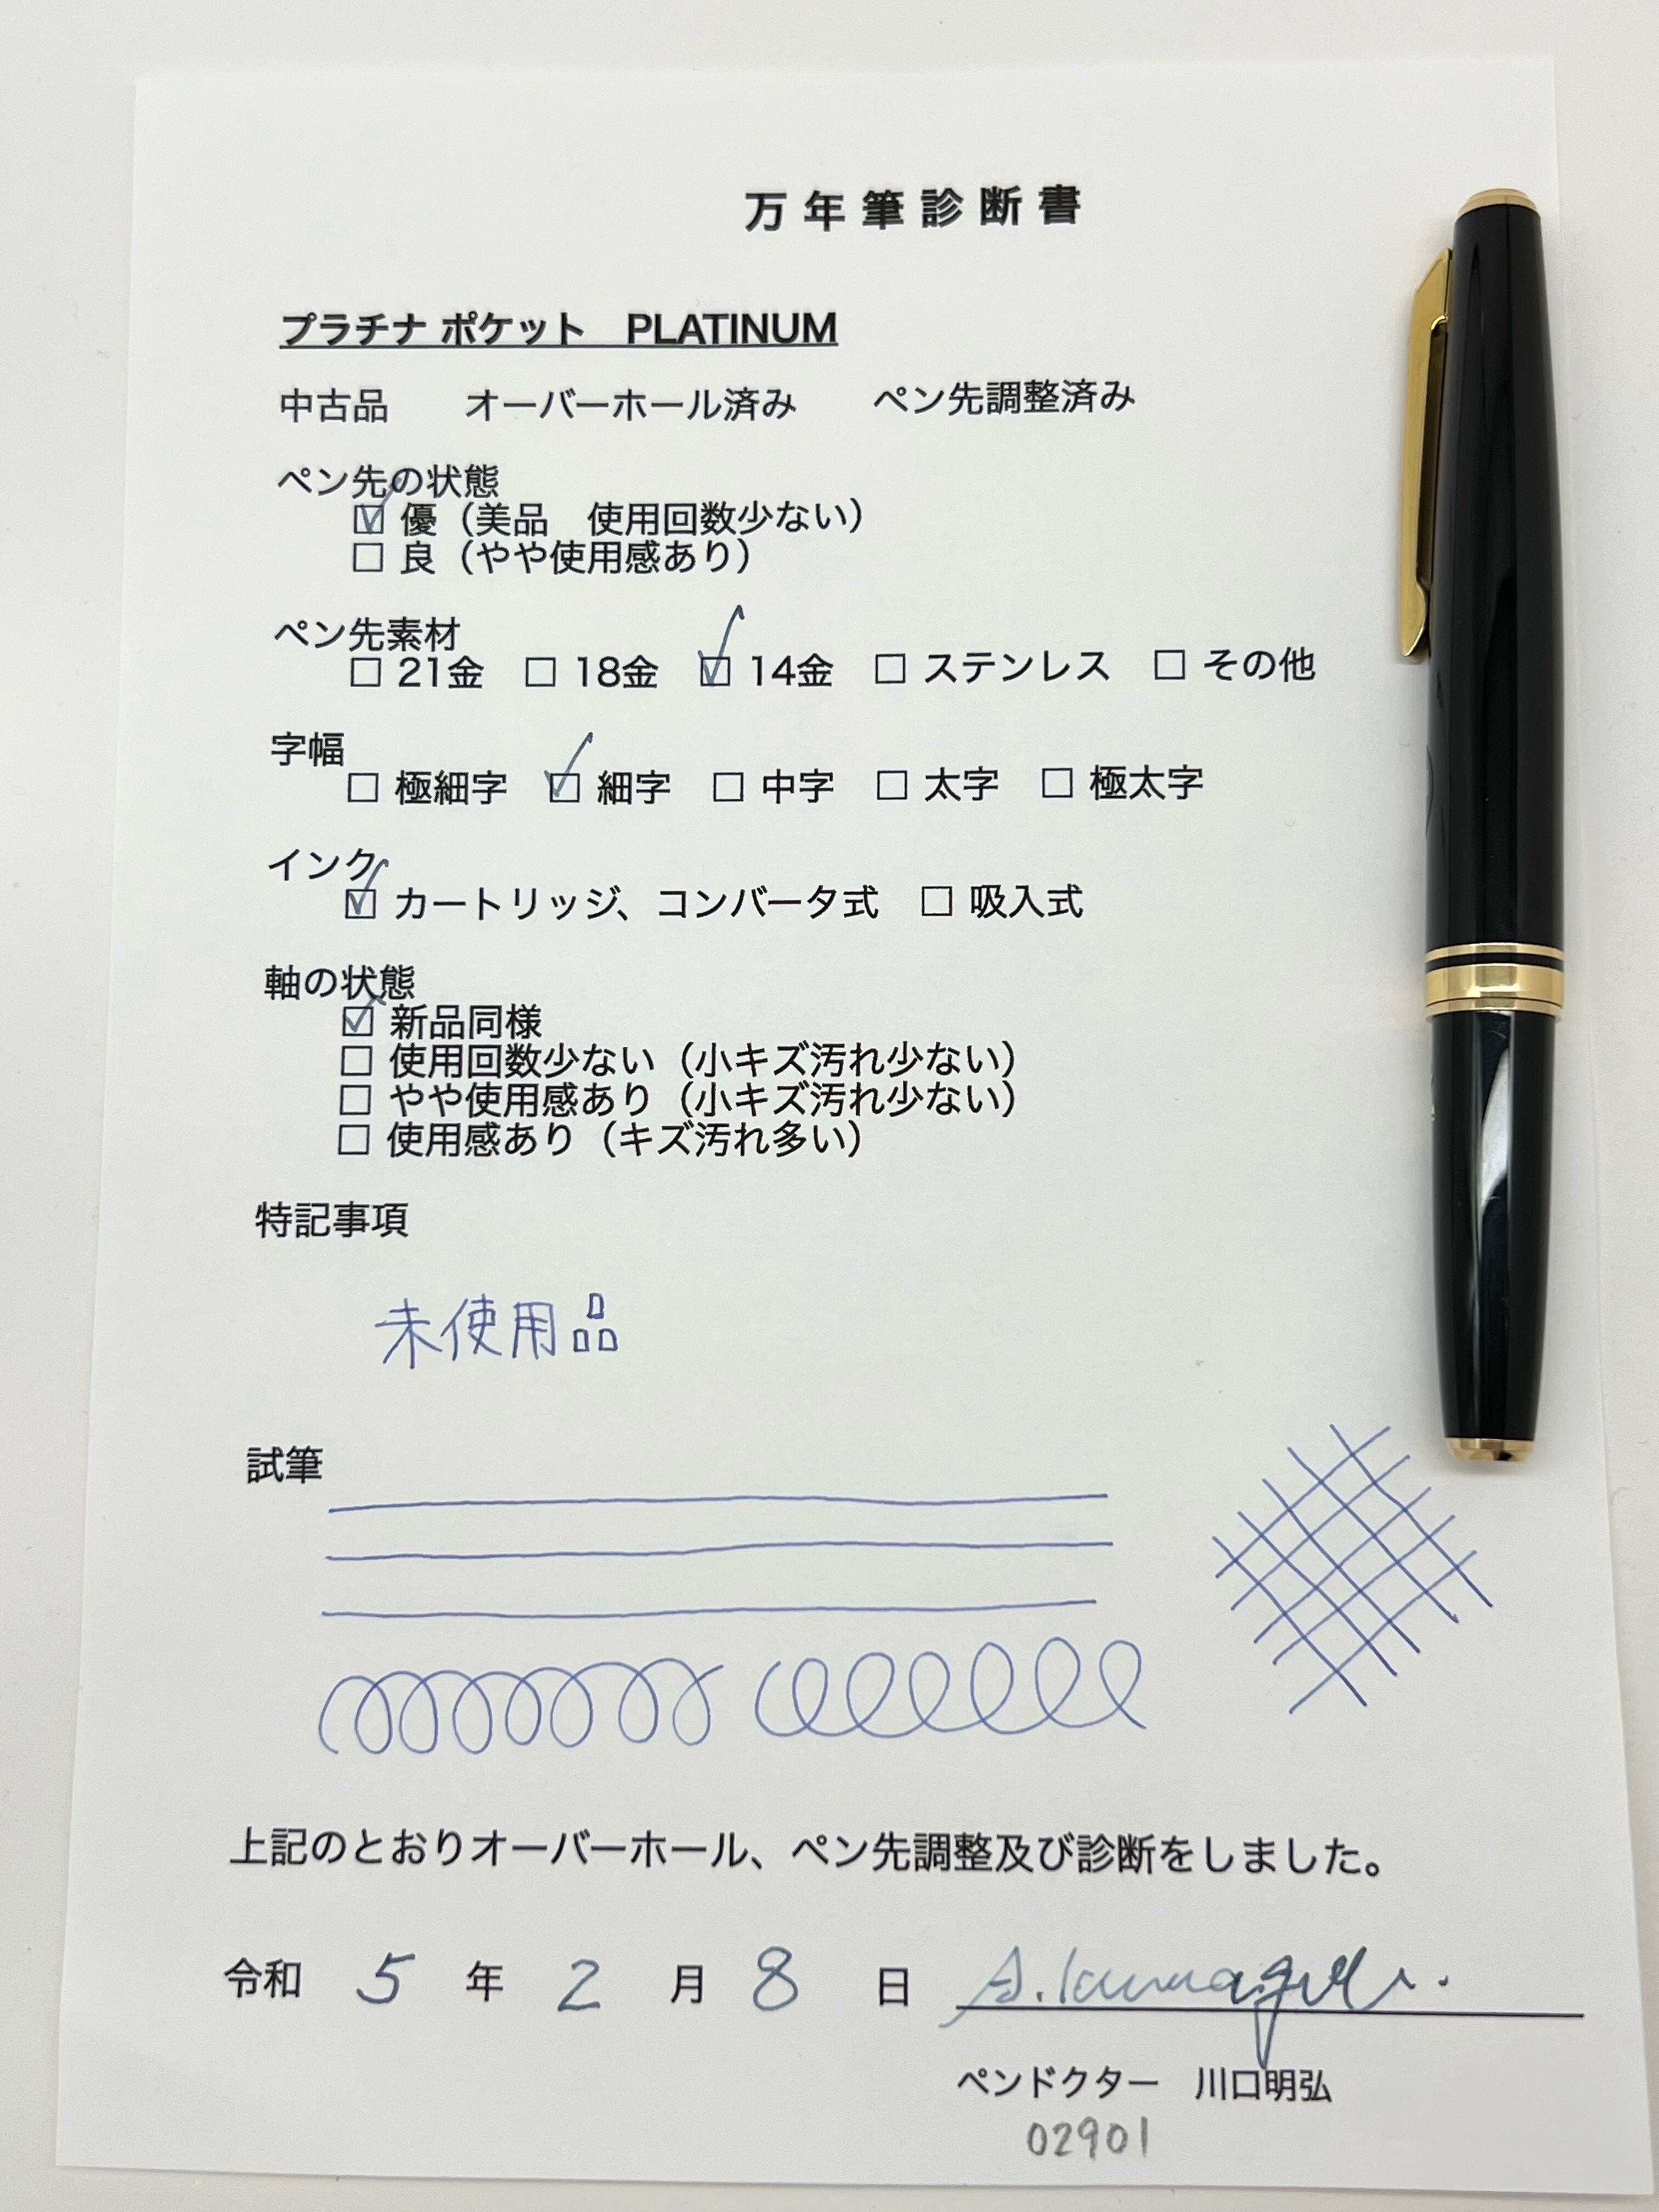 万年筆診断書
プラチナ ポケット　PLATINUM
中古品　　オーバーホール済み　　ペン先調整済み
ペン先の状態
☑ 優（美品　使用回数少ない）
□ 良（やや使用感あり）
ペン先素材
□ 21金　□ 18金　☑ 14金　□ ステンレス　□ その他
字幅
□ 極細字　☑ 細字　□ 中字　□ 太字　□ 極太字
インク
☑ カートリッジ、コンバータ式　□ 吸入式
軸の状態
☑ 新品同様
□ 使用回数少ない（小キズ汚れ少ない）
□ やや使用感あり（小キズ汚れ少ない）
□ 使用感あり（キズ汚れ多い）
特記事項
未使用品
試筆
上記のとおりオーバーホール、ペン先調整及び診断をしました。
令和 5 年 2 月 8 日 A.Kawaguchi.
ペンドクター　川口明弘
02901